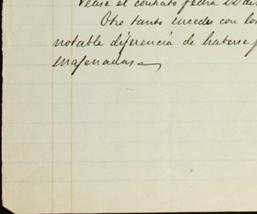 Vease el contrato fecha 22 de
Otro tanto sucedes con los
notable diferencia de haberse
enajenadas